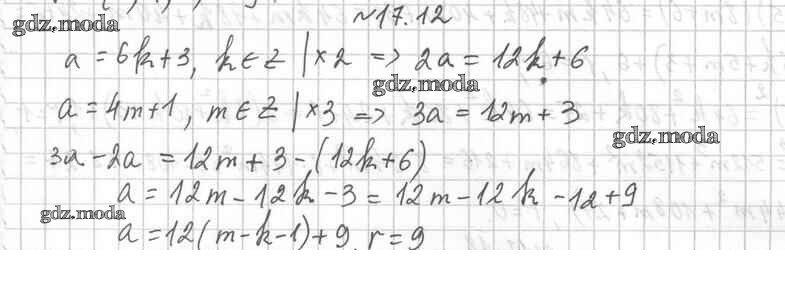 №17.12
gdz.moda
a = 6k+3, k ∈ Z | ×2 => 2a = 12k+6
gdz.moda
a = 4m+1, m ∈ Z | ×3 => 3a = 12m+3
gdz.moda
3a - 2a = 12m + 3 - (12k+6)
a = 12m - 12k - 3 = 12m - 12k - 12 + 9
gdz.moda
a = 12(m-k-1) + 9, r = 9